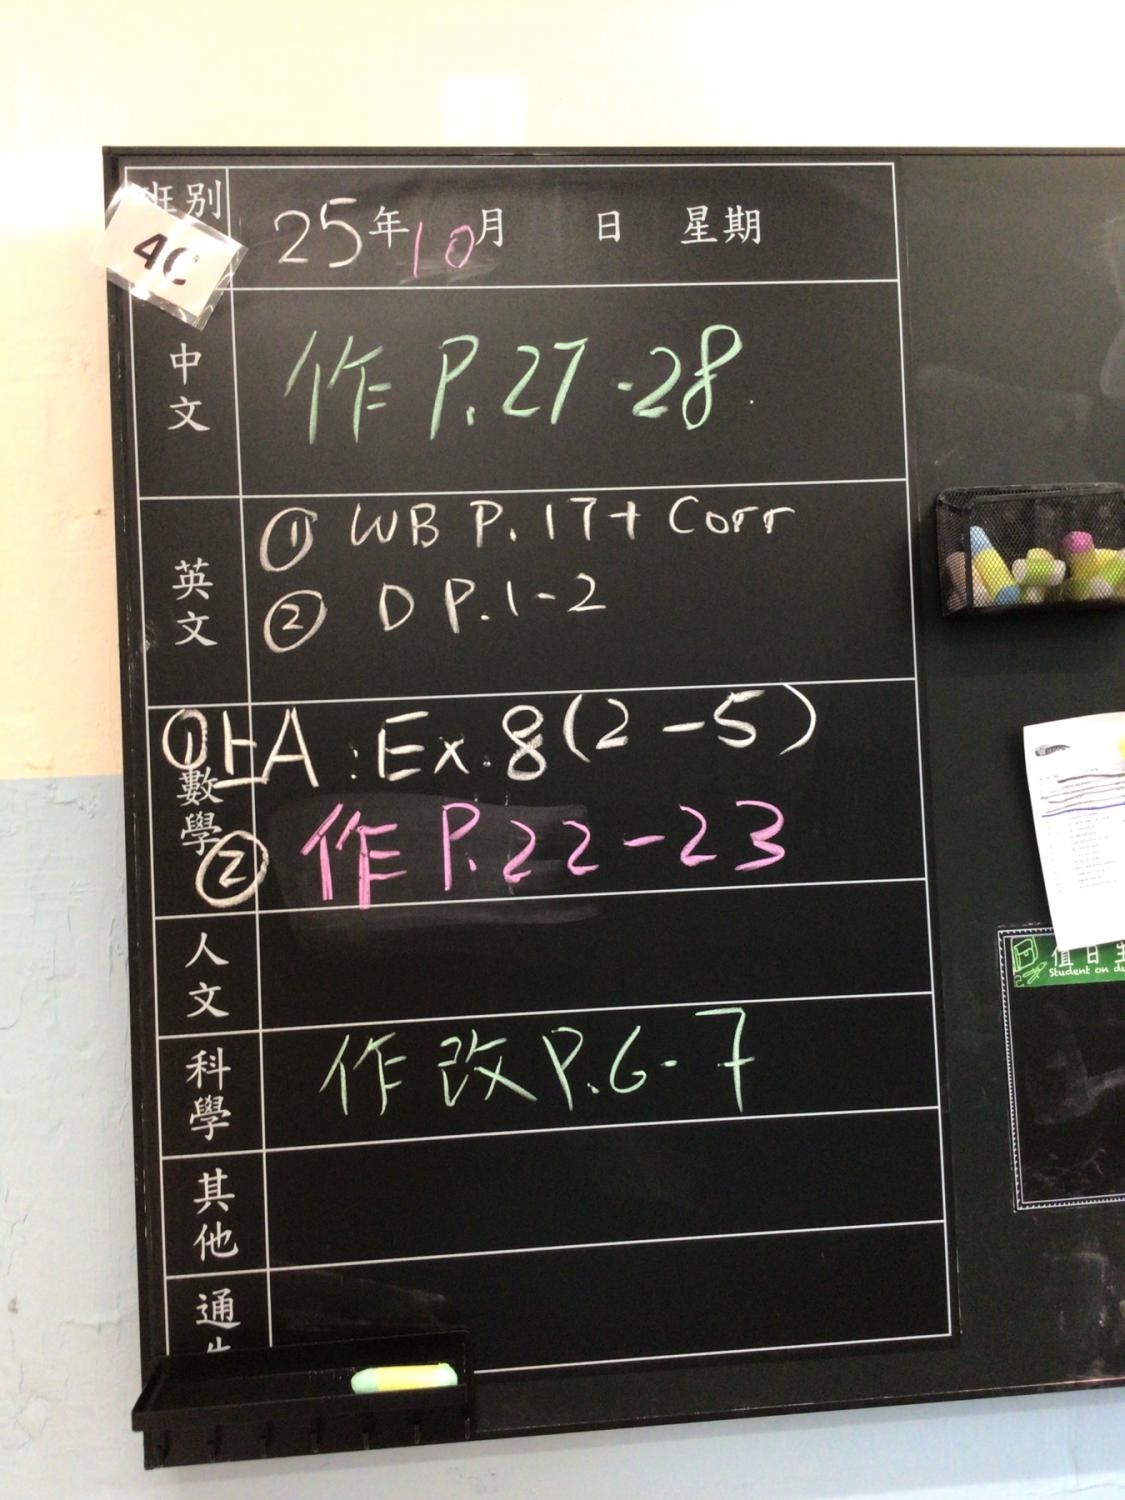 班別
4C
25年10月 日 星期
中文
作 P.27-28
英文
① WB P.17+ Corr
② D P.1-2
數學
① HA: Ex.8(2-5)
② 作 P.22-23
人文
科學
作改 P.6-7
其他
通
值日
Student on du